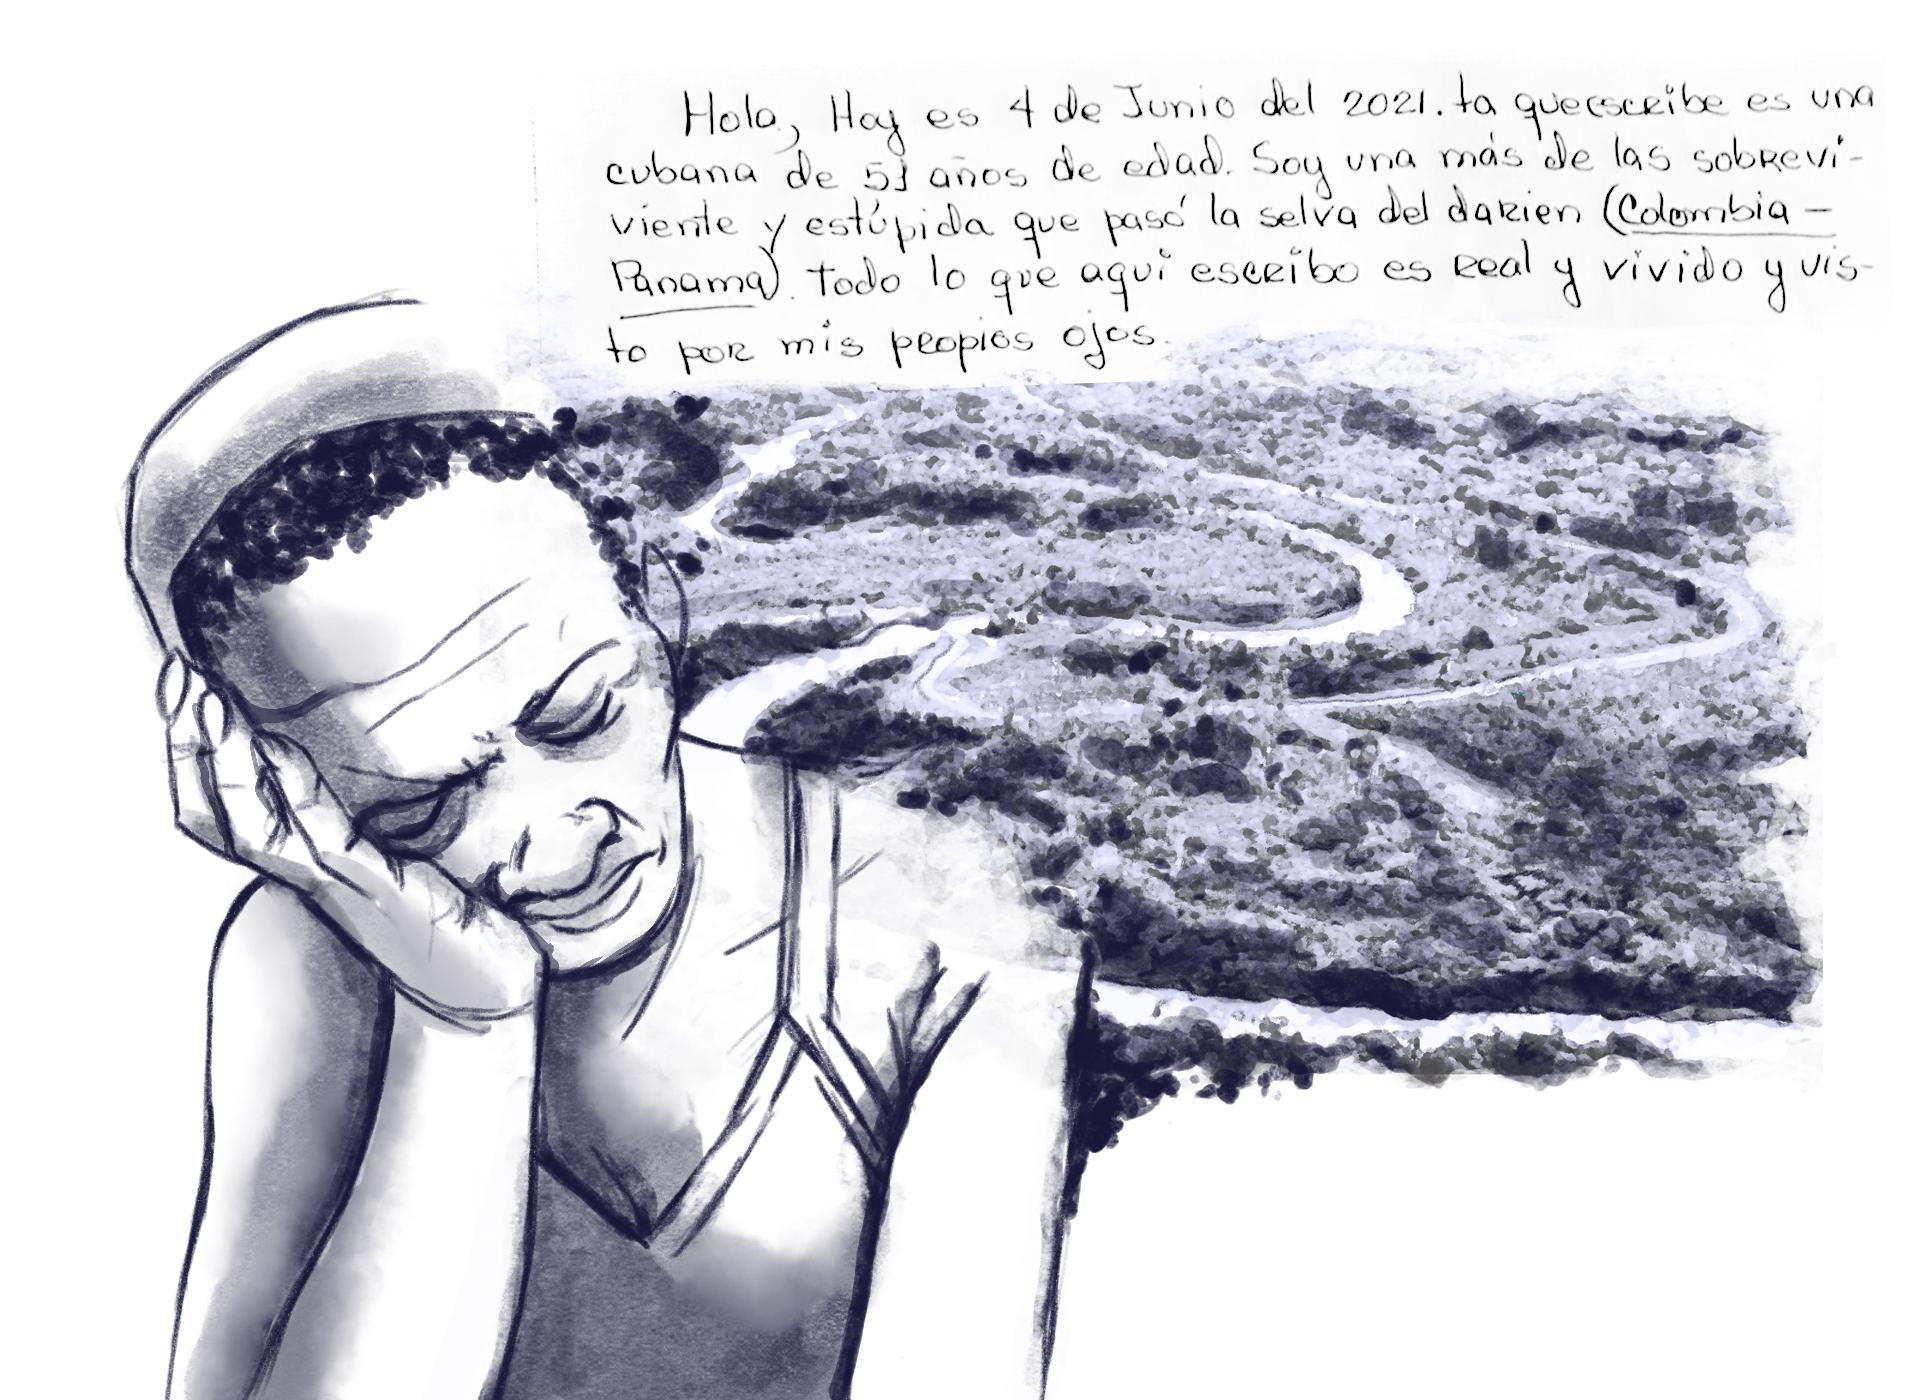 Hola, Hoy es 4 de Junio del 2021. La que escribe es una
cubana de 51 años de edad. Soy una más de las sobrevi-
viente y estúpida que pasó la selva del darien (Colombia -
Panama). Todo lo que aquí escribo es real y vivido y vis-
to por mis propios ojos.